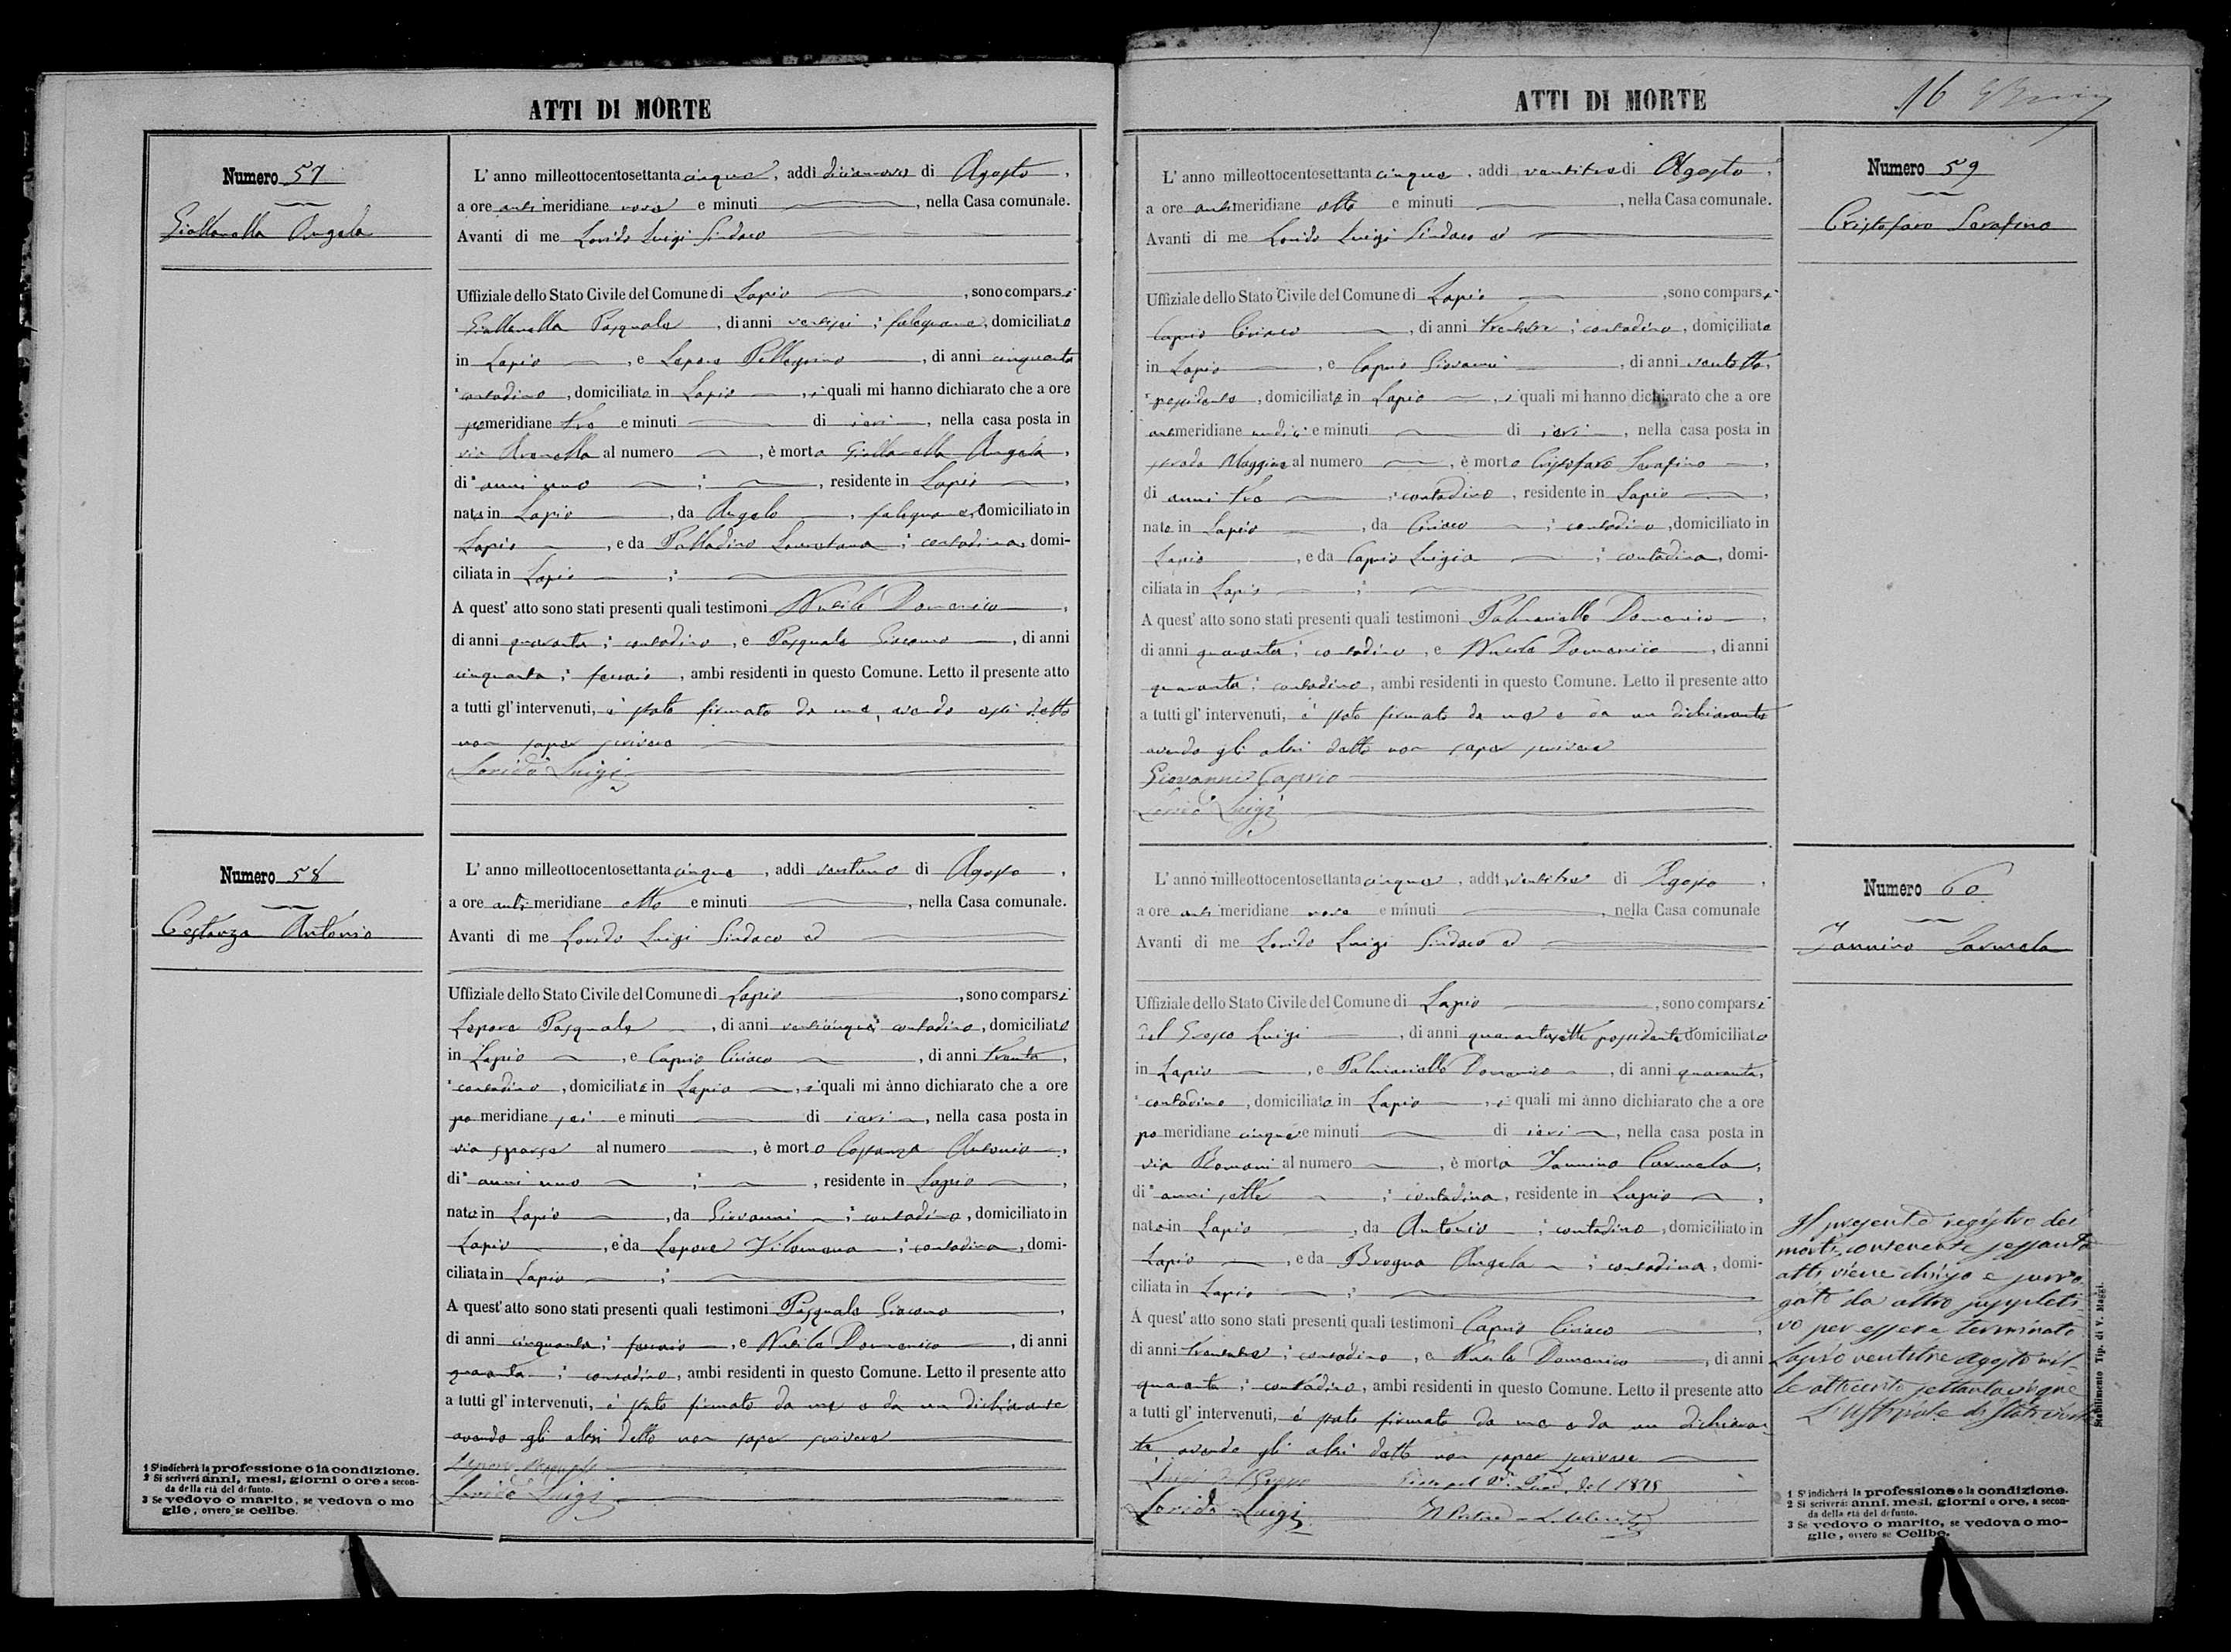 ATTI DI MORTE
Numero 57
Giallanella Angela
L' anno milleottocentosettanta cinque, addì diciannove di Agosto,
a ore anti meridiane nove e minuti, nella Casa comunale.
Avanti di me Lorido Luigi Sindaco
Uffiziale dello Stato Civile del Comune di Lapio, sono comparsi
Giallanella Pasquale, di anni ventisei; falegname, domiciliato
in Lapio, e Lepore Pellegrino, di anni cinquanta
contadino, domiciliato in Lapio, i quali mi hanno dichiarato che a ore
pomeridiane tre e minuti di ieri, nella casa posta in
via Arenella al numero, è morta Giallanella Angela,
di anni uno, residente in Lapio,
nata in Lapio, da Angelo, falegname, domiciliato in
Lapio, e da Palladino; contadina, domi-
ciliata in Lapio
A quest' atto sono stati presenti quali testimoni Domenico,
di anni quaranta; contadino, e Pasquale Giacomo, di anni
cinquanta; ferraio, ambi residenti in questo Comune. Letto il presente atto
a tutti gl' intervenuti, è stato firmato da me, avendo essi detto
non saper scrivere
Lorido Luigi
Numero 58
Costanza Antonio
L' anno milleottocentosettanta cinque, addì ventuno di Agosto,
a ore anti meridiane otto e minuti, nella Casa comunale.
Avanti di me Lorido Luigi Sindaco ed
Uffiziale dello Stato Civile del Comune di Lapio, sono comparsi
Lepore Pasquale, di anni venticinque; contadino, domiciliato
in Lapio, e Caprio Ciriaco, di anni trenta,
contadino, domiciliato in Lapio, i quali mi ànno dichiarato che a ore
po meridiane sei e minuti di ieri, nella casa posta in
via sparsa al numero, è morto Costanza Antonio,
di anni uno, residente in Lapio,
nato in Lapio, da Giovanni; contadino, domiciliato in
Lapio, e da Lepore Filomena; contadina, domi-
ciliata in Lapio
A quest'atto sono stati presenti quali testimoni Pasquale Giacomo,
di anni cinquanta; ferraio, e Domenico, di anni
quaranta; contadino, ambi residenti in questo Comune. Letto il presente atto
a tutti gl' intervenuti, è stato firmato da me e da un dichiarante
avendo gli altri detto non saper scrivere
Lepore Pasquale
Lorido Luigi
1 S'indicherà la professione o la condizione.
2 Si scriverà anni, mesi, giorni o ore a secon-
da della età del defunto.
3 Se vedovo o marito, se vedova o mo
glie, ovvero se celibe.
ATTI DI MORTE
16
L' anno milleottocentosettanta cinque, addì ventitre di Agosto,
a ore antimeridiane otto e minuti, nella Casa comunale.
Avanti di me Lorido Luigi Sindaco ed
Uffiziale dello Stato Civile del Comune di Lapio, sono comparsi
Caprio Ciriaco, di anni trentatre; contadino, domiciliato
in Lapio, e Caprio Giovanni, di anni ventotto,
possidente, domiciliato in Lapio, i quali mi hanno dichiarato che a ore
antimeridiane undici e minuti di ieri, nella casa posta in
strada Maggiore al numero, è morto Cristofaro Serafino,
di anni tre; contadino, residente in Lapio,
nato in Lapio, da Ciriaco; contadino, domiciliato in
Lapio, e da Caprio Luigia; contadina, domi-
ciliata in Lapio
A quest' atto sono stati presenti quali testimoni Palmariello Domenico,
di anni quaranta; contadino, e Domenico, di anni
quaranta; contadino, ambi residenti in questo Comune. Letto il presente atto
a tutti gl' intervenuti, è stato firmato da me e da un dichiarante
avendo gli altri detto non saper scrivere
Giovanni Caprio
Lorido Luigi
Numero 59
Cristofaro Serafino
L' anno milleottocentosettanta cinque, addì ventitre di Agosto,
a ore anti meridiane nove e minuti, nella Casa comunale
Avanti di me Lorido Luigi Sindaco ed
Uffiziale dello Stato Civile del Comune di Lapio, sono comparsi
del Grosso Luigi, di anni quarantasette possidente domiciliato
in Lapio, e Palmariello Domenico, di anni quaranta,
contadino, domiciliato in Lapio, i quali mi ànno dichiarato che a ore
po meridiane cinque e minuti di ieri, nella casa posta in
via Romani al numero, è morta Iannino Carmela,
di anni sette; contadina, residente in Lapio,
nata in Lapio, da Antonio; contadino, domiciliato in
Lapio, e da Brogna Angela; contadina, domi-
ciliata in Lapio
A quest' atto sono stati presenti quali testimoni Caprio Ciriaco,
di anni trentatre; contadino, e Domenico, di anni
quaranta; contadino, ambi residenti in questo Comune. Letto il presente atto
a tutti gl' intervenuti, è stato firmato da me e da un dichiaran-
te avendo gli altri detto non saper scrivere
Luigi del Grosso
Lorido Luigi
Il Pretore
Numero 60
Iannino Carmela
Il presente registro dei
morti, contenente sessanta
atti viene chiuso e surro-
gato da altro suppleti
vo per essere terminato
Lapio ventitre Agosto mil-
le ottocento settantacinque
L'Uffiziale di Stato Civile
Stabilimento Tip. di V. Maggi.
1 S' indicherà la professione o la condizione.
2 Si scriverà: anni, mesi, giorni o ore, a secon-
da della età del defunto.
3 Se vedovo o marito, se vedova o mo-
glie, ovvero se Celibe.